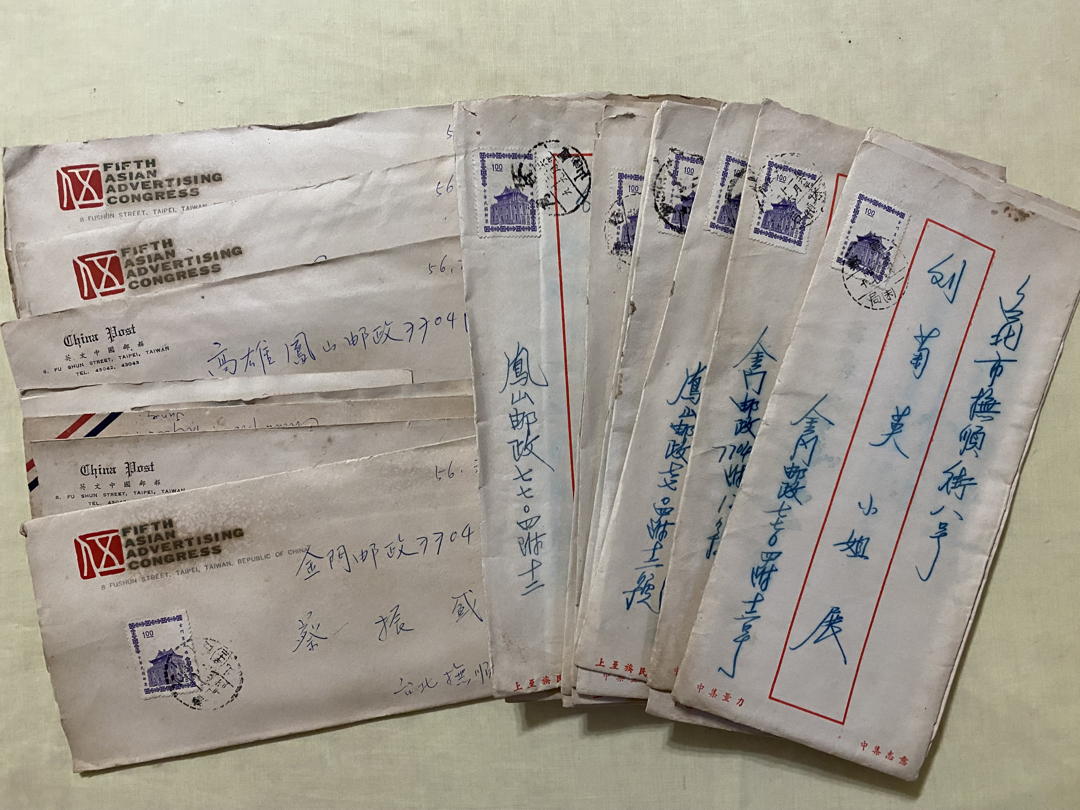 FIFTH
ASIAN
ADVERTISING
CONGRESS
8 FUSHUN STREET, TAIPEI, TAIWAN
56.
FIFTH
ASIAN
ADVERTISING
CONGRESS
56.
China Post
英文中國郵報
8, FU SHUN STREET, TAIPEI, TAIWAN
TEL. 45042, 43043
高雄鳳山邮政77041
China Post
英文中國郵報
8, FU SHUN STREET, TAIPEI, TAIWAN
56.
FIFTH
ASIAN
ADVERTISING
CONGRESS
8 FUSHUN STREET, TAIPEI, TAIWAN, REPUBLIC OF CHINA
金門邮政7704
蔡振盛
台北撫順
1.00
1.00
鳳山邮政七七〇四附十二
上至族民
1.00
1.00
鳳山邮政七七〇四附十二號
上至族民
1.00
金門邮政7704附
1.00
台北市撫順街八号
劉菊英小姐 展
金門邮政七七〇四附十二号
中集量力
中集志意